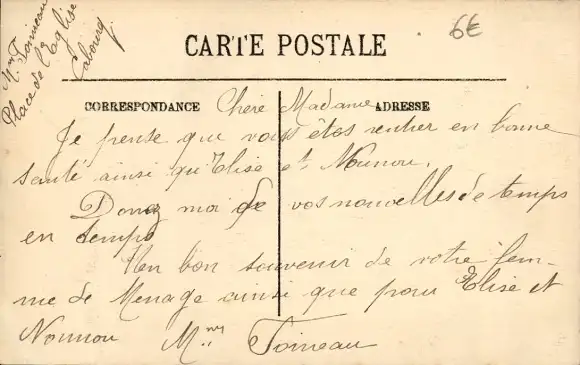 Mme Toineau
Place de l'Eglise
Cabourg
6€
CARTE POSTALE
CORRESPONDANCE
ADRESSE
Chère Madame
Je pense que vous êtes rentrer en bonne
santé ainsi qu'Elise et Nounou.
Donez moi de vos nouvelles de temps
en temps
Un bon souvenir de votre fem-
me de Menage ainsi que pour Elise et
Nounou Mme Toineau